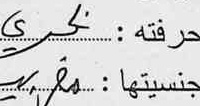 حرفته : بحري
جنسيتها : مغربية